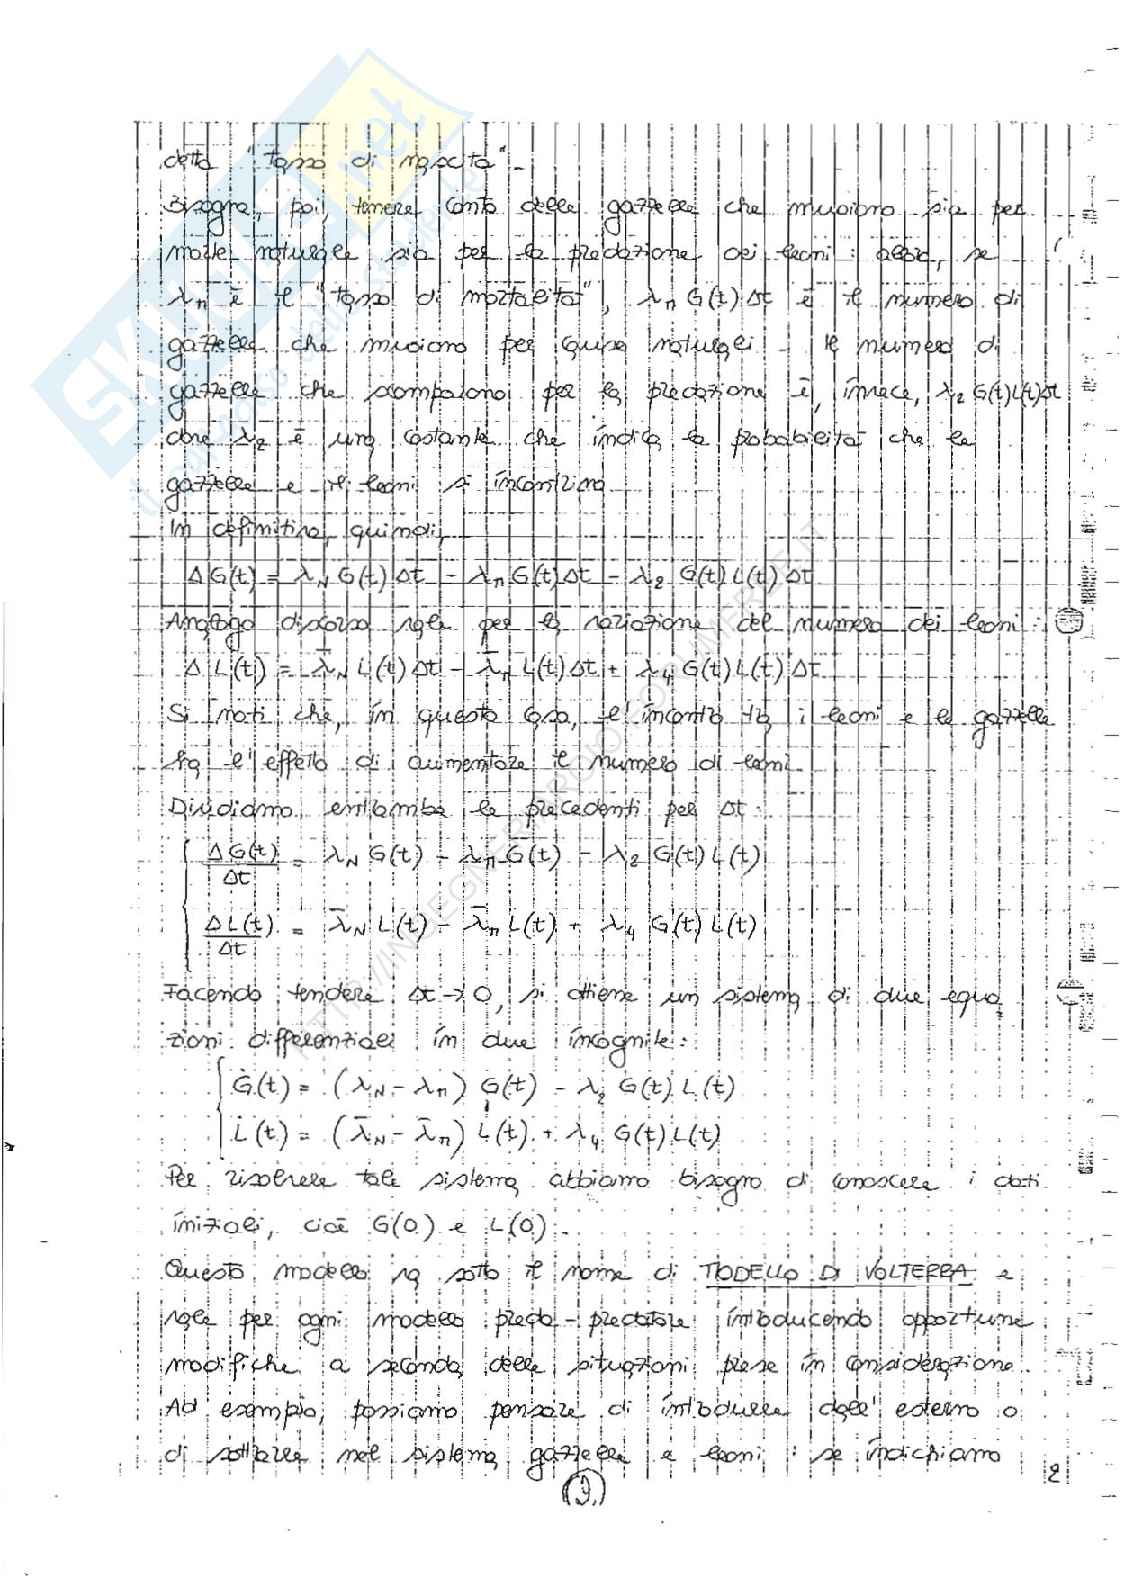 detto "tasso di nascita".
Bisogna, poi, tenere conto delle gazzelle che muoiono sia per
morte naturale sia per la predazione dei leoni: allora, se
λₘ è il "tasso di mortalità", λₘ G(t) Δt è il numero di
gazzelle che muoiono per cause naturali. Il numero di
gazzelle che scompaiono per la predazione è, invece, λ₂ G(t)L(t)Δt
dove λ₂ è una costante che indica la probabilità che le
gazzelle e i leoni si incontrino.
In definitiva, quindi,
ΔG(t) = λ_N G(t) Δt - λₘ G(t)Δt - λ₂ G(t) L(t) Δt
Analogo discorso vale per la variazione del numero dei leoni:
ΔL(t) = λ̄_N L(t)Δt - λ̄ₘ L(t)Δt + λ₄ G(t)L(t)Δt
Si noti che, in questo caso, l'incontro tra i leoni e le gazzelle
ha l'effetto di aumentare il numero di leoni.
Dividiamo entrambe le precedenti per Δt:
ΔG(t)/Δt = λ_N G(t) - λₘ G(t) - λ₂ G(t) L(t)
ΔL(t)/Δt = λ̄_N L(t) - λ̄ₘ L(t) + λ₄ G(t) L(t)
Facendo tendere Δt→0, si ottiene un sistema di due equa
zioni differenziali in due incognite:
Ġ(t) = (λ_N - λₘ) G(t) - λ₂ G(t) L(t)
L̇(t) = (λ̄_N - λ̄ₘ) L(t) + λ₄ G(t)L(t)
Per risolvere tale sistema abbiamo bisogno di conoscere i dati
iniziali, cioè G(0) e L(0).
Questo modello va sotto il nome di MODELLO DI VOLTERRA e
vale per ogni modello preda-predatore introducendo opportune
modifiche a seconda delle situazioni prese in considerazione.
Ad esempio, possiamo pensare di introdurre dall'esterno o
di sottrarre nel sistema gazzelle e leoni: se indichiamo
2
SKUOLA.net
HTTP://INGEGNERIAFORUM.FORUMFREE.IT